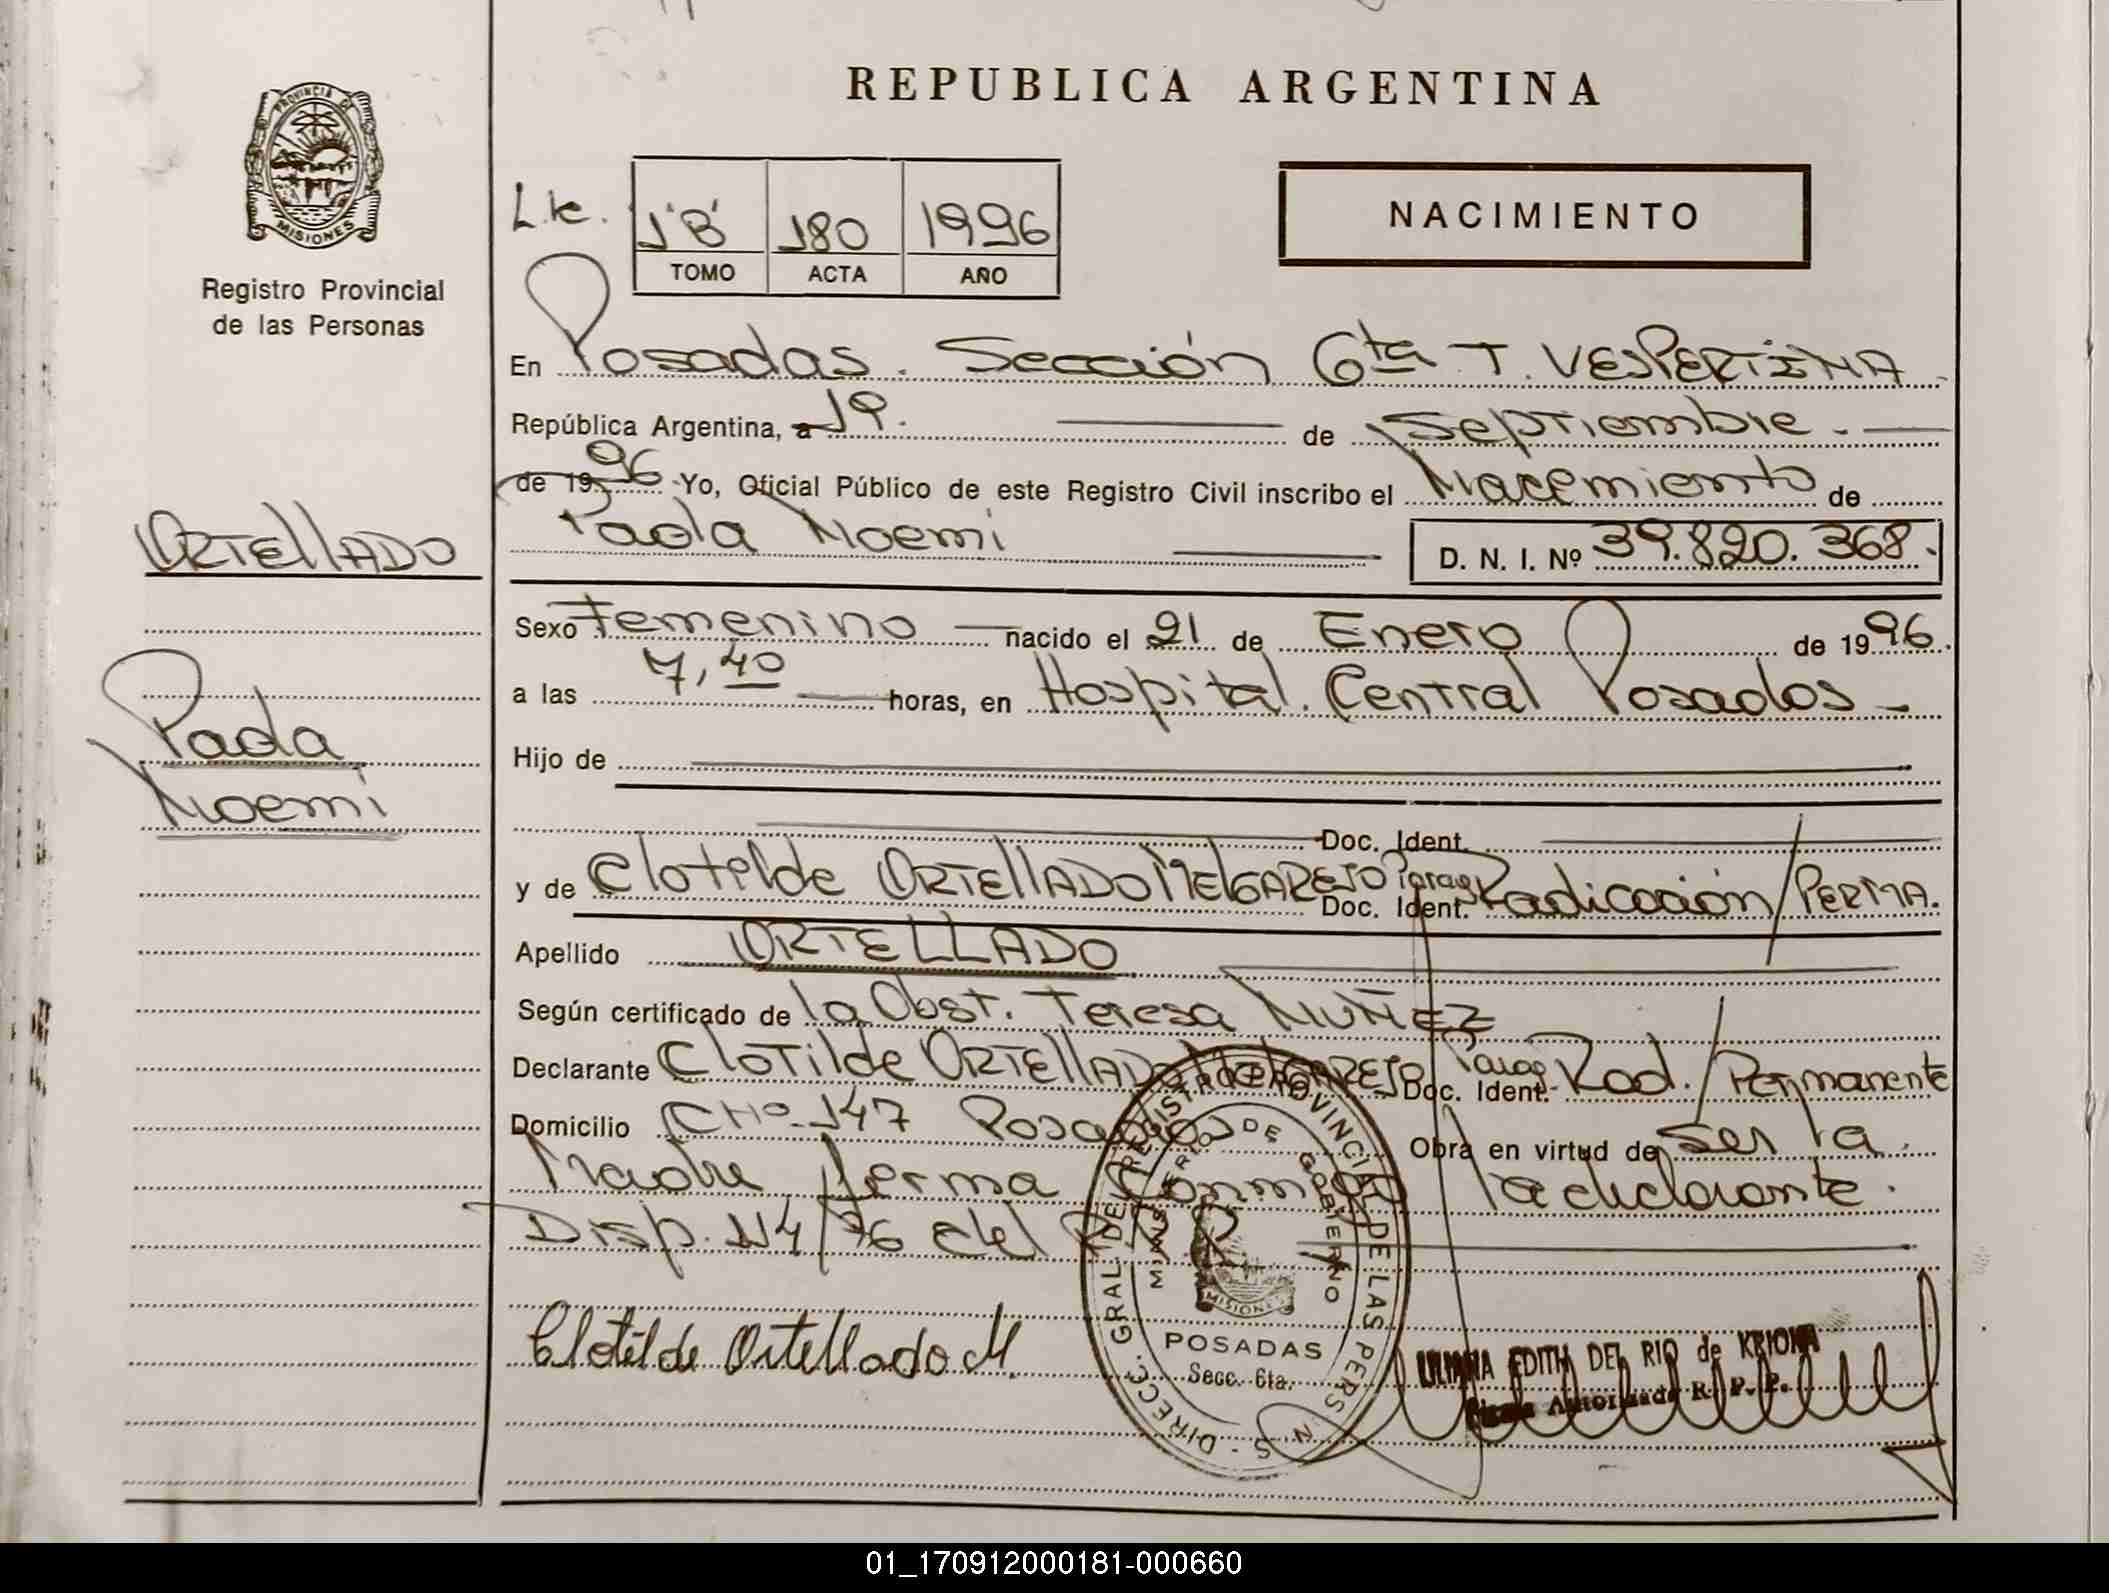 REPUBLICA ARGENTINA
PROVINCIA DE
MISIONES
Registro Provincial
de las Personas
L.te.
1"B" 180 1996
TOMO ACTA AÑO
NACIMIENTO
En Posadas. Sección 6ta T. VESPERTINA
República Argentina, a 19. de Septiembre.
de 1996 Yo, Oficial Público de este Registro Civil inscribo el Nacimiento de
Paola Noemi D. N. I. Nº 39.820.368.
ORTEllADO
Paola
Noemi
Sexo Femenino nacido el 21 de Enero de 1996.
a las 7,40 horas, en Hospital. Central Posadas
Hijo de
Doc. Ident.
y de Clotilde ORTEllADO MELGAREJO Parag Doc. Ident. Radicación/PERMA.
Apellido ORTELLADO
Según certificado de la Obst. Teresa NUÑEZ
Declarante CloTilde ORTEllADO MELGAREJO Parag Doc. Ident. Rad./Permanente
Domicilio CHº 147 Posadas Obra en virtud de ser la
Madre firma Conmigo la declarante.
Disp. 114/76 del R.P.
Clotilde Ortellado M.
DIRECC. GRAL DEL REGISTRO PROVINCIAL DE LAS PERSONAS
MINISTERIO DE GOBIERNO
MISIONES
POSADAS
Secc. 6ta.
LILIANA EDITH DEL RIO de KRIONA
Firma Autorizada R. P. P.
01_170912000181-000660